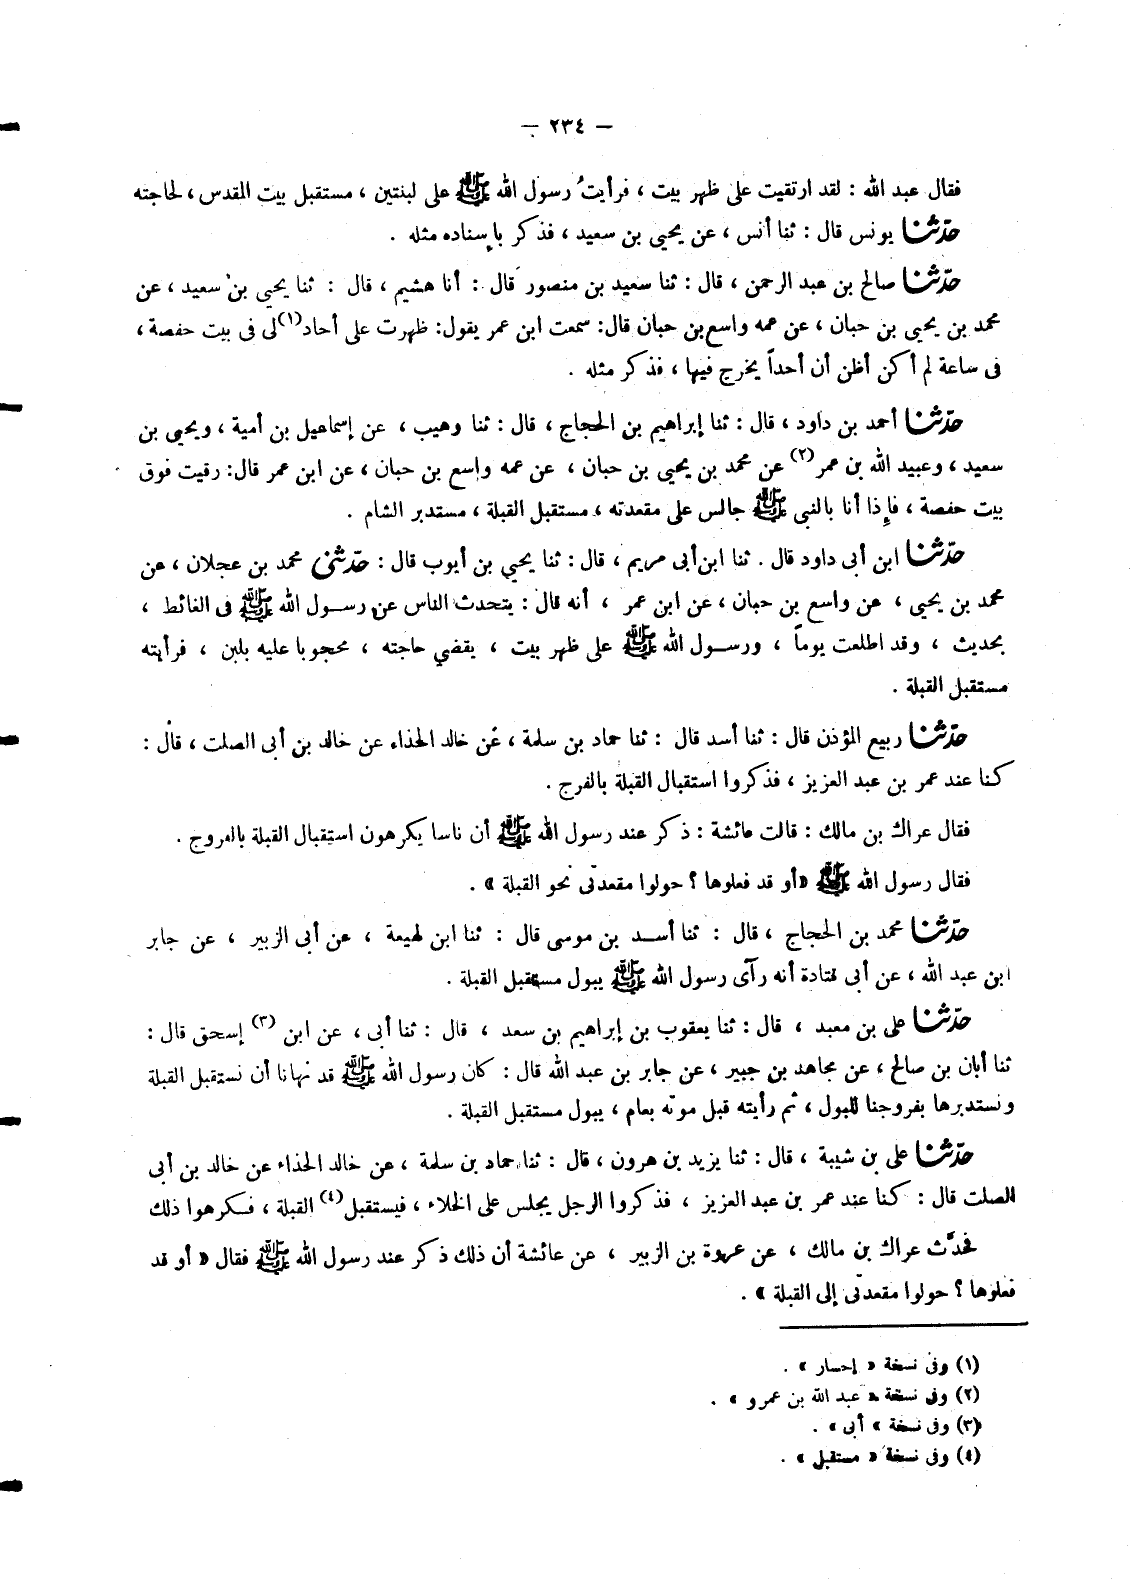 — ٢٣٤ —
فقال عبد الله : لقد ارتقيت على ظهر بيت ، فرأيتُ رسول الله ﷺ على لبنتين ، مستقبل بيت المقدس ، لحاجته
حدّثنا يونس قال : ثنا أنس ، عن يحيى بن سعيد ، فذكر بإسناده مثله .
حدّثنا صالح بن عبد الرحمن ، قال : ثنا سعيد بن منصور قال : أنا هشيم ، قال : ثنا يحيى بن سعيد ، عن
محمد بن يحيى بن حبان ، عن عمه واسع بن حبان قال: سمعت ابن عمر يقول: ظهرت على أحاد(١) لى فى بيت حفصة ،
فى ساعة لم أكن أظن أن أحداً يخرج فيها ، فذكر مثله .
حدّثنا أحمد بن داود ، قال : ثنا إبراهيم بن الحجاج ، قال : ثنا وهيب ، عن إسماعيل بن أمية ، ويحيى بن
سعيد ، وعبيد الله بن عمر(٢) عن محمد بن يحيى بن حبان ، عن عمه واسع بن حبان ، عن ابن عمر قال: رقيت فوق
بيت حفصة ، فإذا أنا بالنبى ﷺ جالس على مقعدته ، مستقبل القبلة ، مستدبر الشام .
حدّثنا ابن أبى داود قال . ثنا ابن أبى مريم ، قال : ثنا يحيى بن أيوب قال : حدّثنى محمد بن عجلان ، عن
محمد بن يحيى ، عن واسع بن حبان ، عن ابن عمر ، أنه قال : يتحدث الناس عن رسول الله ﷺ فى الغائط ،
بحديث ، وقد اطلعت يوماً ، ورسول الله ﷺ على ظهر بيت ، يقضي حاجته ، محجوبا عليه بلبن ، فرأيته
مستقبل القبلة .
حدّثنا ربيع المؤذن قال : ثنا أسد قال : ثنا حماد بن سلمة ، عن خالد الحذاء عن خالد بن أبى الصلت ، قال :
كنا عند عمر بن عبد العزيز ، فذكروا استقبال القبلة بالفرج .
فقال عراك بن مالك : قالت عائشة : ذكر عند رسول الله ﷺ أن ناسا يكرهون استقبال القبلة بالفروج .
فقال رسول الله ﷺ «أو قد فعلوها ؟ حولوا مقعدتى نحو القبلة » .
حدّثنا محمد بن الحجاج ، قال : ثنا أسد بن موسى قال : ثنا ابن لهيعة ، عن أبى الزبير ، عن جابر
ابن عبد الله ، عن أبى قتادة أنه رآى رسول الله ﷺ يبول مستقبل القبلة .
حدّثنا على بن معبد ، قال : ثنا يعقوب بن إبراهيم بن سعد ، قال : ثنا أبى ، عن ابن (٣) إسحق قال :
ثنا أبان بن صالح ، عن مجاهد بن جبير ، عن جابر بن عبد الله قال : كان رسول الله ﷺ قد نهانا أن نستقبل القبلة
ونستدبرها بفروجنا للبول ، ثم رأيته قبل موته بعام ، يبول مستقبل القبلة .
حدّثنا على بن شيبة ، قال : ثنا يزيد بن هرون ، قال : ثنا حماد بن سلمة ، عن خالد الحذاء عن خالد بن أبى
الصلت قال : كنا عند عمر بن عبد العزيز ، فذكروا الرجل يجلس على الخلاء ، فيستقبل(٤) القبلة ، فكرهوا ذلك
فحدَّث عراك بن مالك ، عن عروة بن الزبير ، عن عائشة أن ذلك ذكر عند رسول الله ﷺ فقال « أو قد
فعلوها ؟ حولوا مقعدتى إلى القبلة » .
(١) وفى نسخة « إحسار » .
(٢) وفى نسخة « عبد الله بن عمرو » .
(٣) وفى نسخة « أبى » .
(٤) وفى نسخة « مستقبل » .